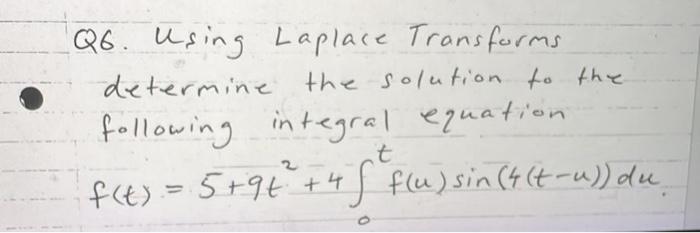 Q6. Using Laplace Transforms
determine the solution to the
following integral equation
f(t) = 5+9t² +4 ∫₀ᵗ f(u) sin(4(t-u)) du.